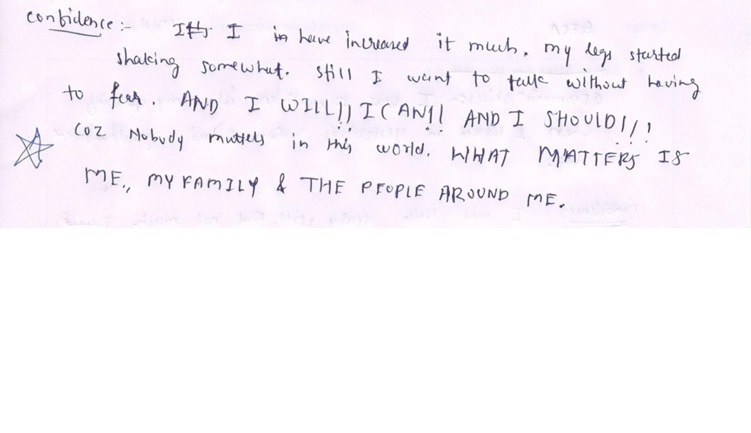 Confidence :- I in have increased it much. My legs started
shaking somewhat. Still I want to talk without having
to fear. AND I WILL!! I CAN!! AND I SHOULD!!!
Coz Nobody matters in this world. WHAT MATTERS IS
ME., MY FAMILY & THE PEOPLE AROUND ME.